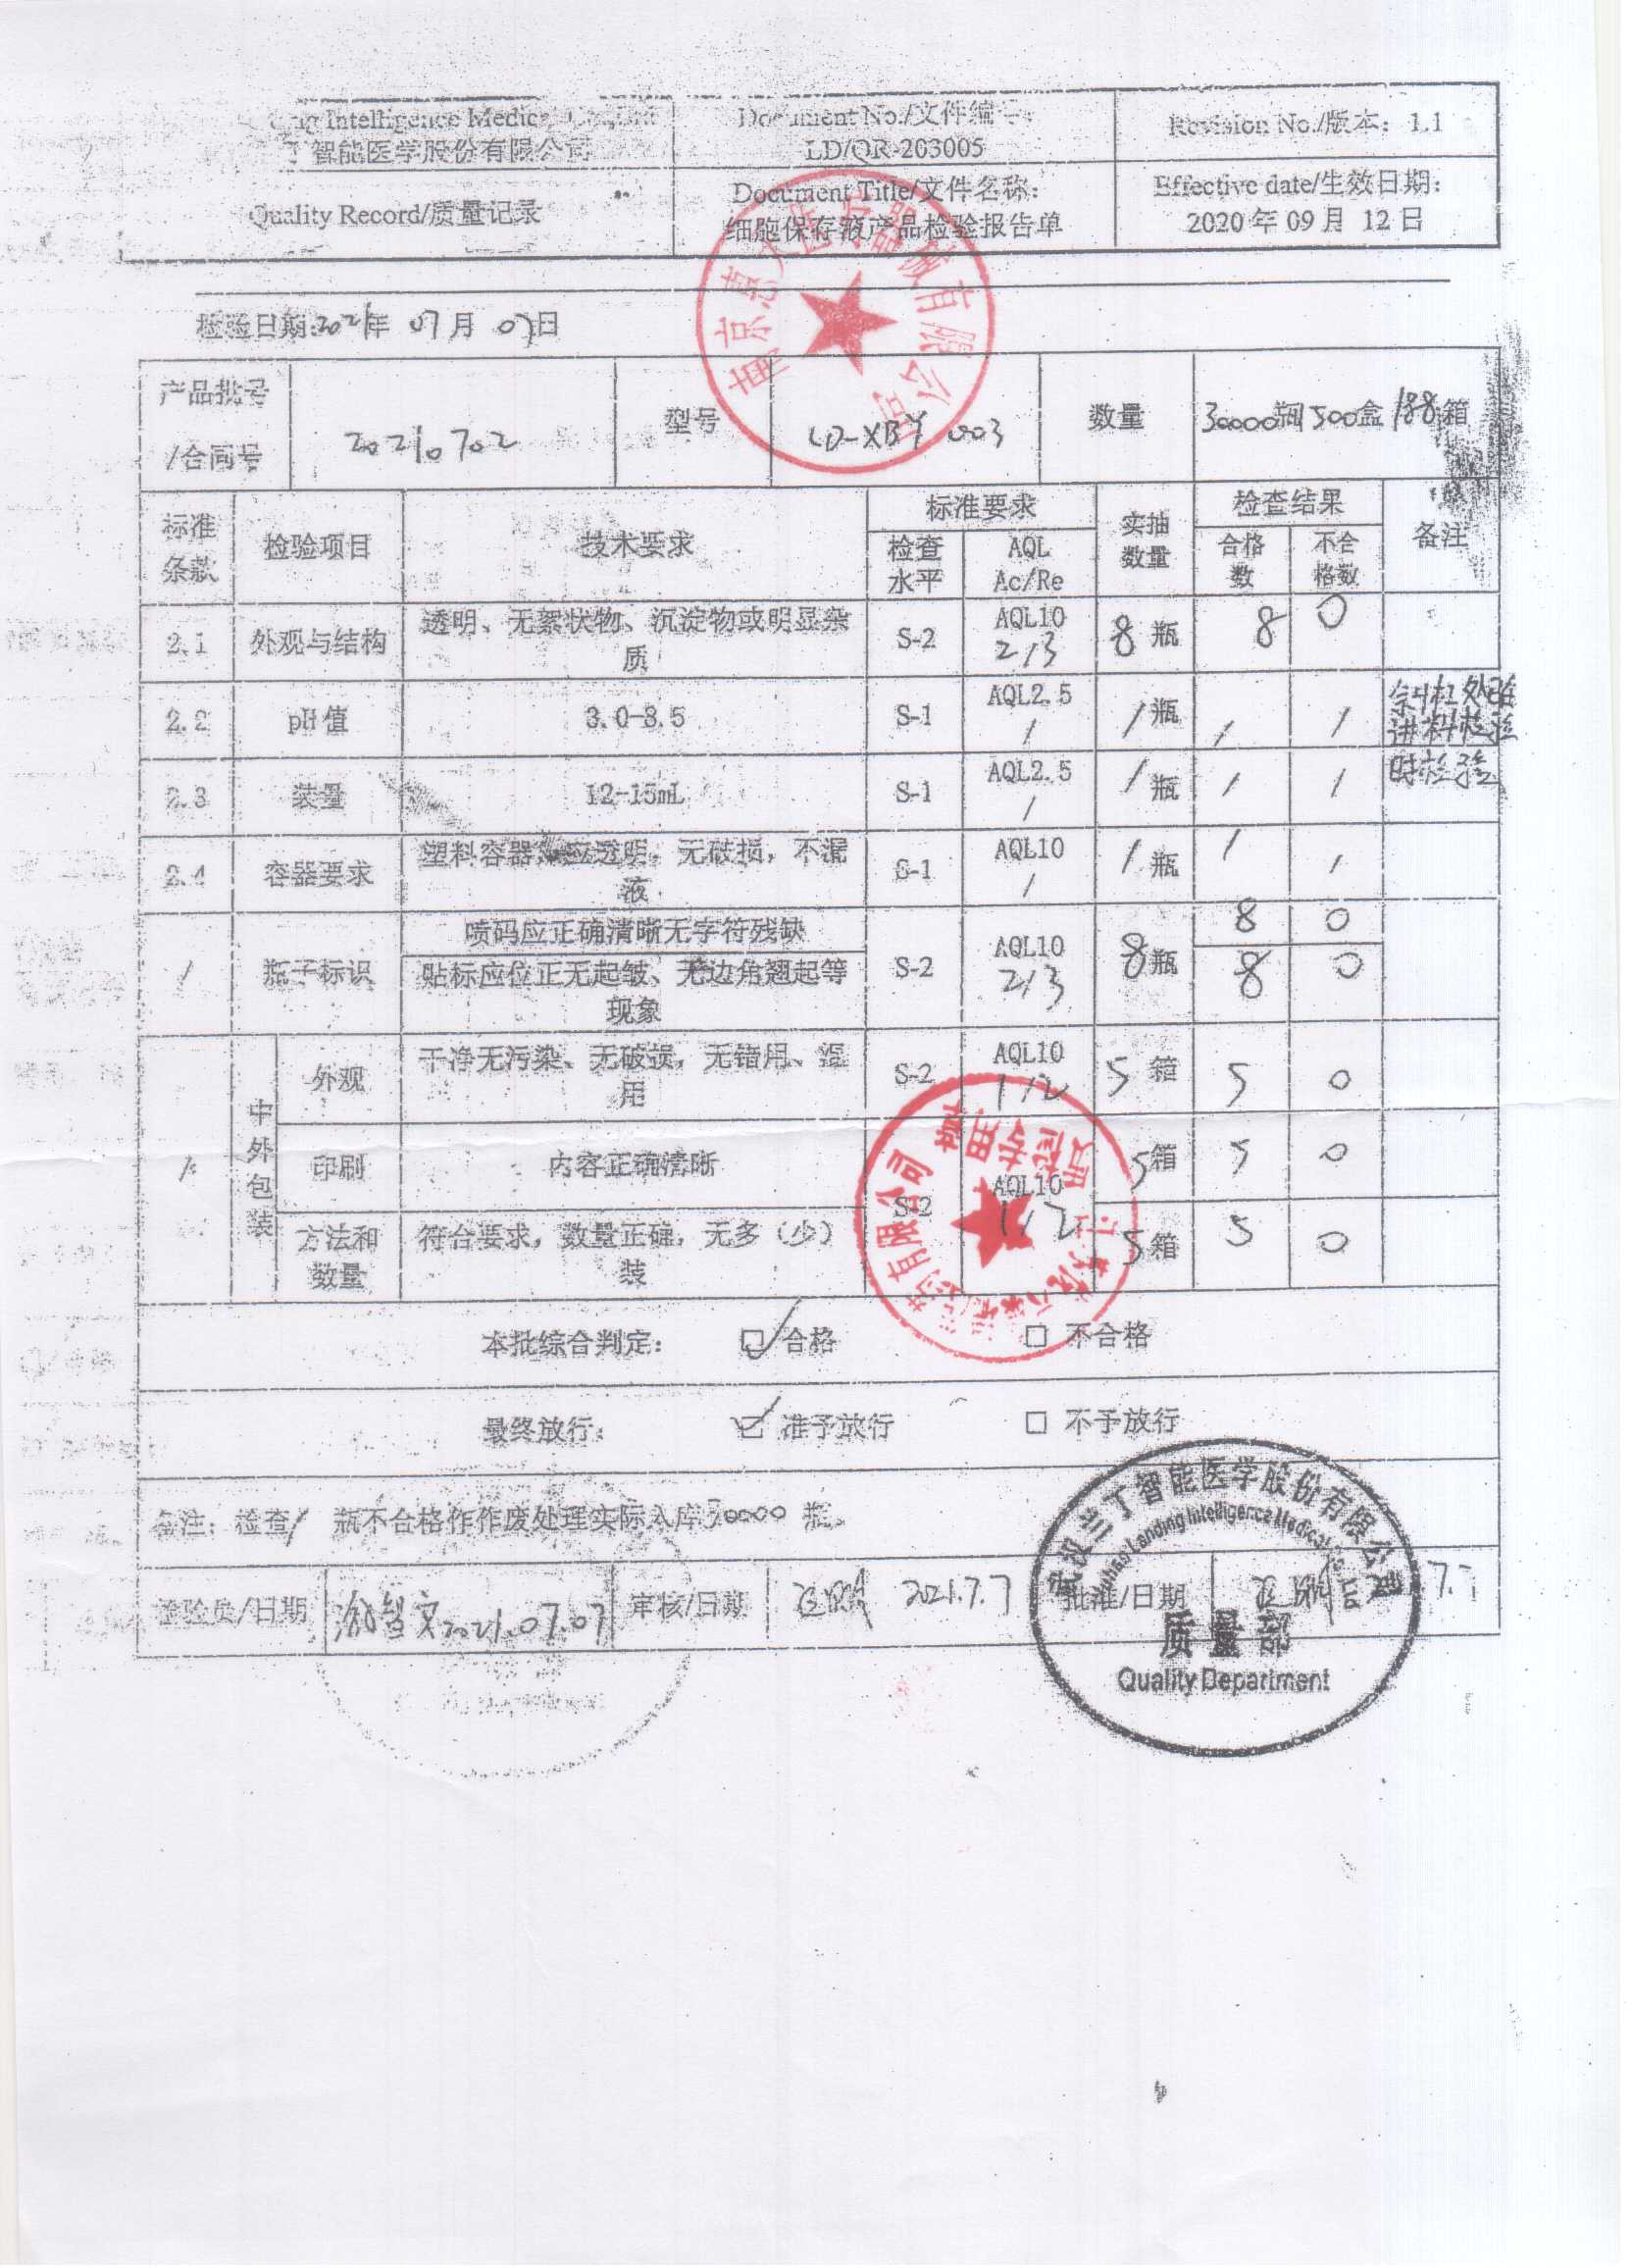 Intelligence Medical
丁智能医学股份有限公司
Document No./文件编号:
LD/QR-203005
Revision No./版本：1.1
Quality Record/质量记录
Document Title/文件名称：
细胞保存液产品检验报告单
Effective date/生效日期：
2020年09月 12日
检验日期:2021年 07月 07日
产品批号
/合同号
20210702
型号
LD-XBY 003
数量
30000瓶1500盒/188箱
标准
条款
检验项目
技术要求
标准要求
检查
水平
AQL
Ac/Re
实抽
数量
检查结果
合格
数
不合
格数
备注
2.1 外观与结构 透明、无絮状物、沉淀物或明显杂
质
S-2 AQL10
2/3
8 瓶 8 0
2.2 pH值 3.0-8.5 S-1 AQL2.5
/
/ 瓶 / /
斜杠处在
进料检验
时检验
2.3 装量 12-15mL S-1 AQL2.5
/
/ 瓶 / /
2.4 容器要求 塑料容器 应透明，无破损，不漏
液
S-1 AQL10
/
/ 瓶 / /
/ 瓶子标识
喷码应正确清晰无字符残缺
贴标应位正无起皱、无边角翘起等
现象
S-2 AQL10
2/3
8瓶
8 0
8 0
/ 中外包装
外观 干净无污染、无破损，无错用、混
用
S-2 AQL10
1/2
5 箱 5 0
印刷 内容正确清晰
S-2 AQL10
1/2
5箱 5 0
方法和
数量
符合要求，数量正确，无多（少）
装
5箱 5 0
本批综合判定： ☑ 合格 □ 不合格
最终放行： ☑ 准予放行 □ 不予放行
备注：检查/ 瓶不合格作作废处理实际入库30000 瓶。
检验员/日期 2021.07.07 审核/日期 2021.7.7 批准/日期 7.7
武汉兰丁智能医学股份有限公司
Wuhan Landing Intelligence Medical Co., Ltd
质量部
Quality Department
有限公司
有限公司